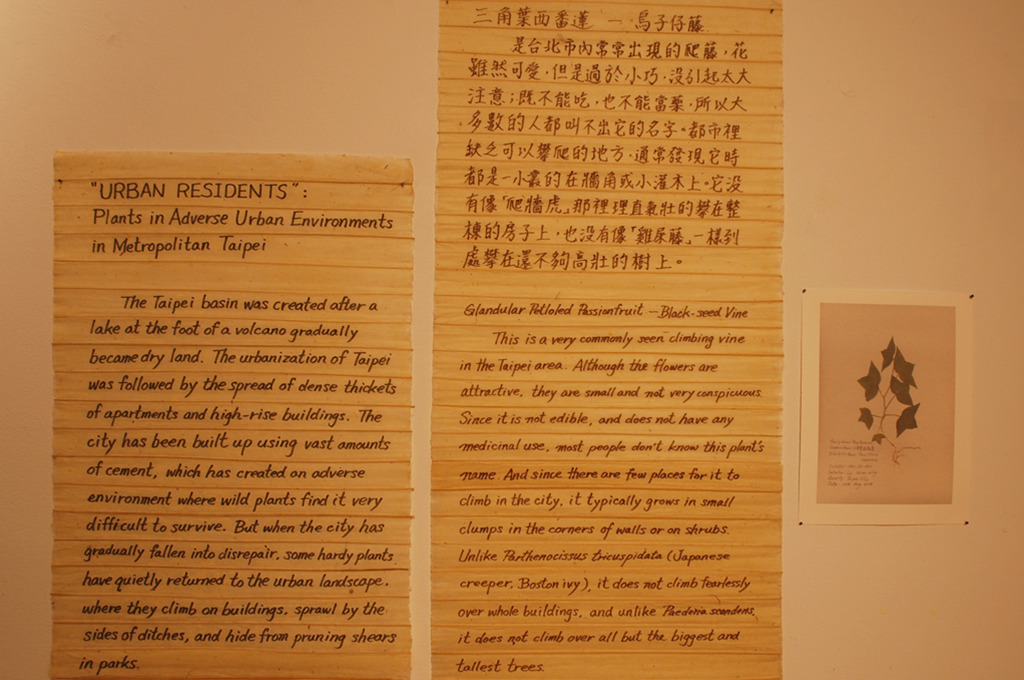 "URBAN RESIDENTS":
Plants in Adverse Urban Environments
in Metropolitan Taipei
The Taipei basin was created after a
lake at the foot of a volcano gradually
became dry land. The urbanization of Taipei
was followed by the spread of dense thickets
of apartments and high-rise buildings. The
city has been built up using vast amounts
of cement, which has created an adverse
environment where wild plants find it very
difficult to survive. But when the city has
gradually fallen into disrepair, some hardy plants
have quietly returned to the urban landscape,
where they climb on buildings, sprawl by the
sides of ditches, and hide from pruning shears
in parks.
三角葉西番蓮 — 烏子仔藤
是台北市內常常出現的爬藤,花
雖然可愛,但是過於小巧,沒引起太大
注意;既不能吃,也不能當藥,所以大
多數的人都叫不出它的名字。都市裡
缺乏可以攀爬的地方,通常發現它時
都是一小叢的在牆角或小灌木上。它没
有像「爬牆虎」那裡理直氣壯的攀在整
棟的房子上,也没有像「雞屎藤」一樣到
處攀在還不夠高壯的樹上。
Glandular Petioled Passionfruit — Black-seed Vine
This is a very commonly seen climbing vine
in the Taipei area. Although the flowers are
attractive, they are small and not very conspicuous.
Since it is not edible, and does not have any
medicinal use, most people don't know this plant's
name. And since there are few places for it to
climb in the city, it typically grows in small
clumps in the corners of walls or on shrubs.
Unlike Parthenocissus tricuspidata (Japanese
creeper, Boston ivy), it does not climb fearlessly
over whole buildings, and unlike Paederia scandens,
it does not climb over all but the biggest and
tallest trees.